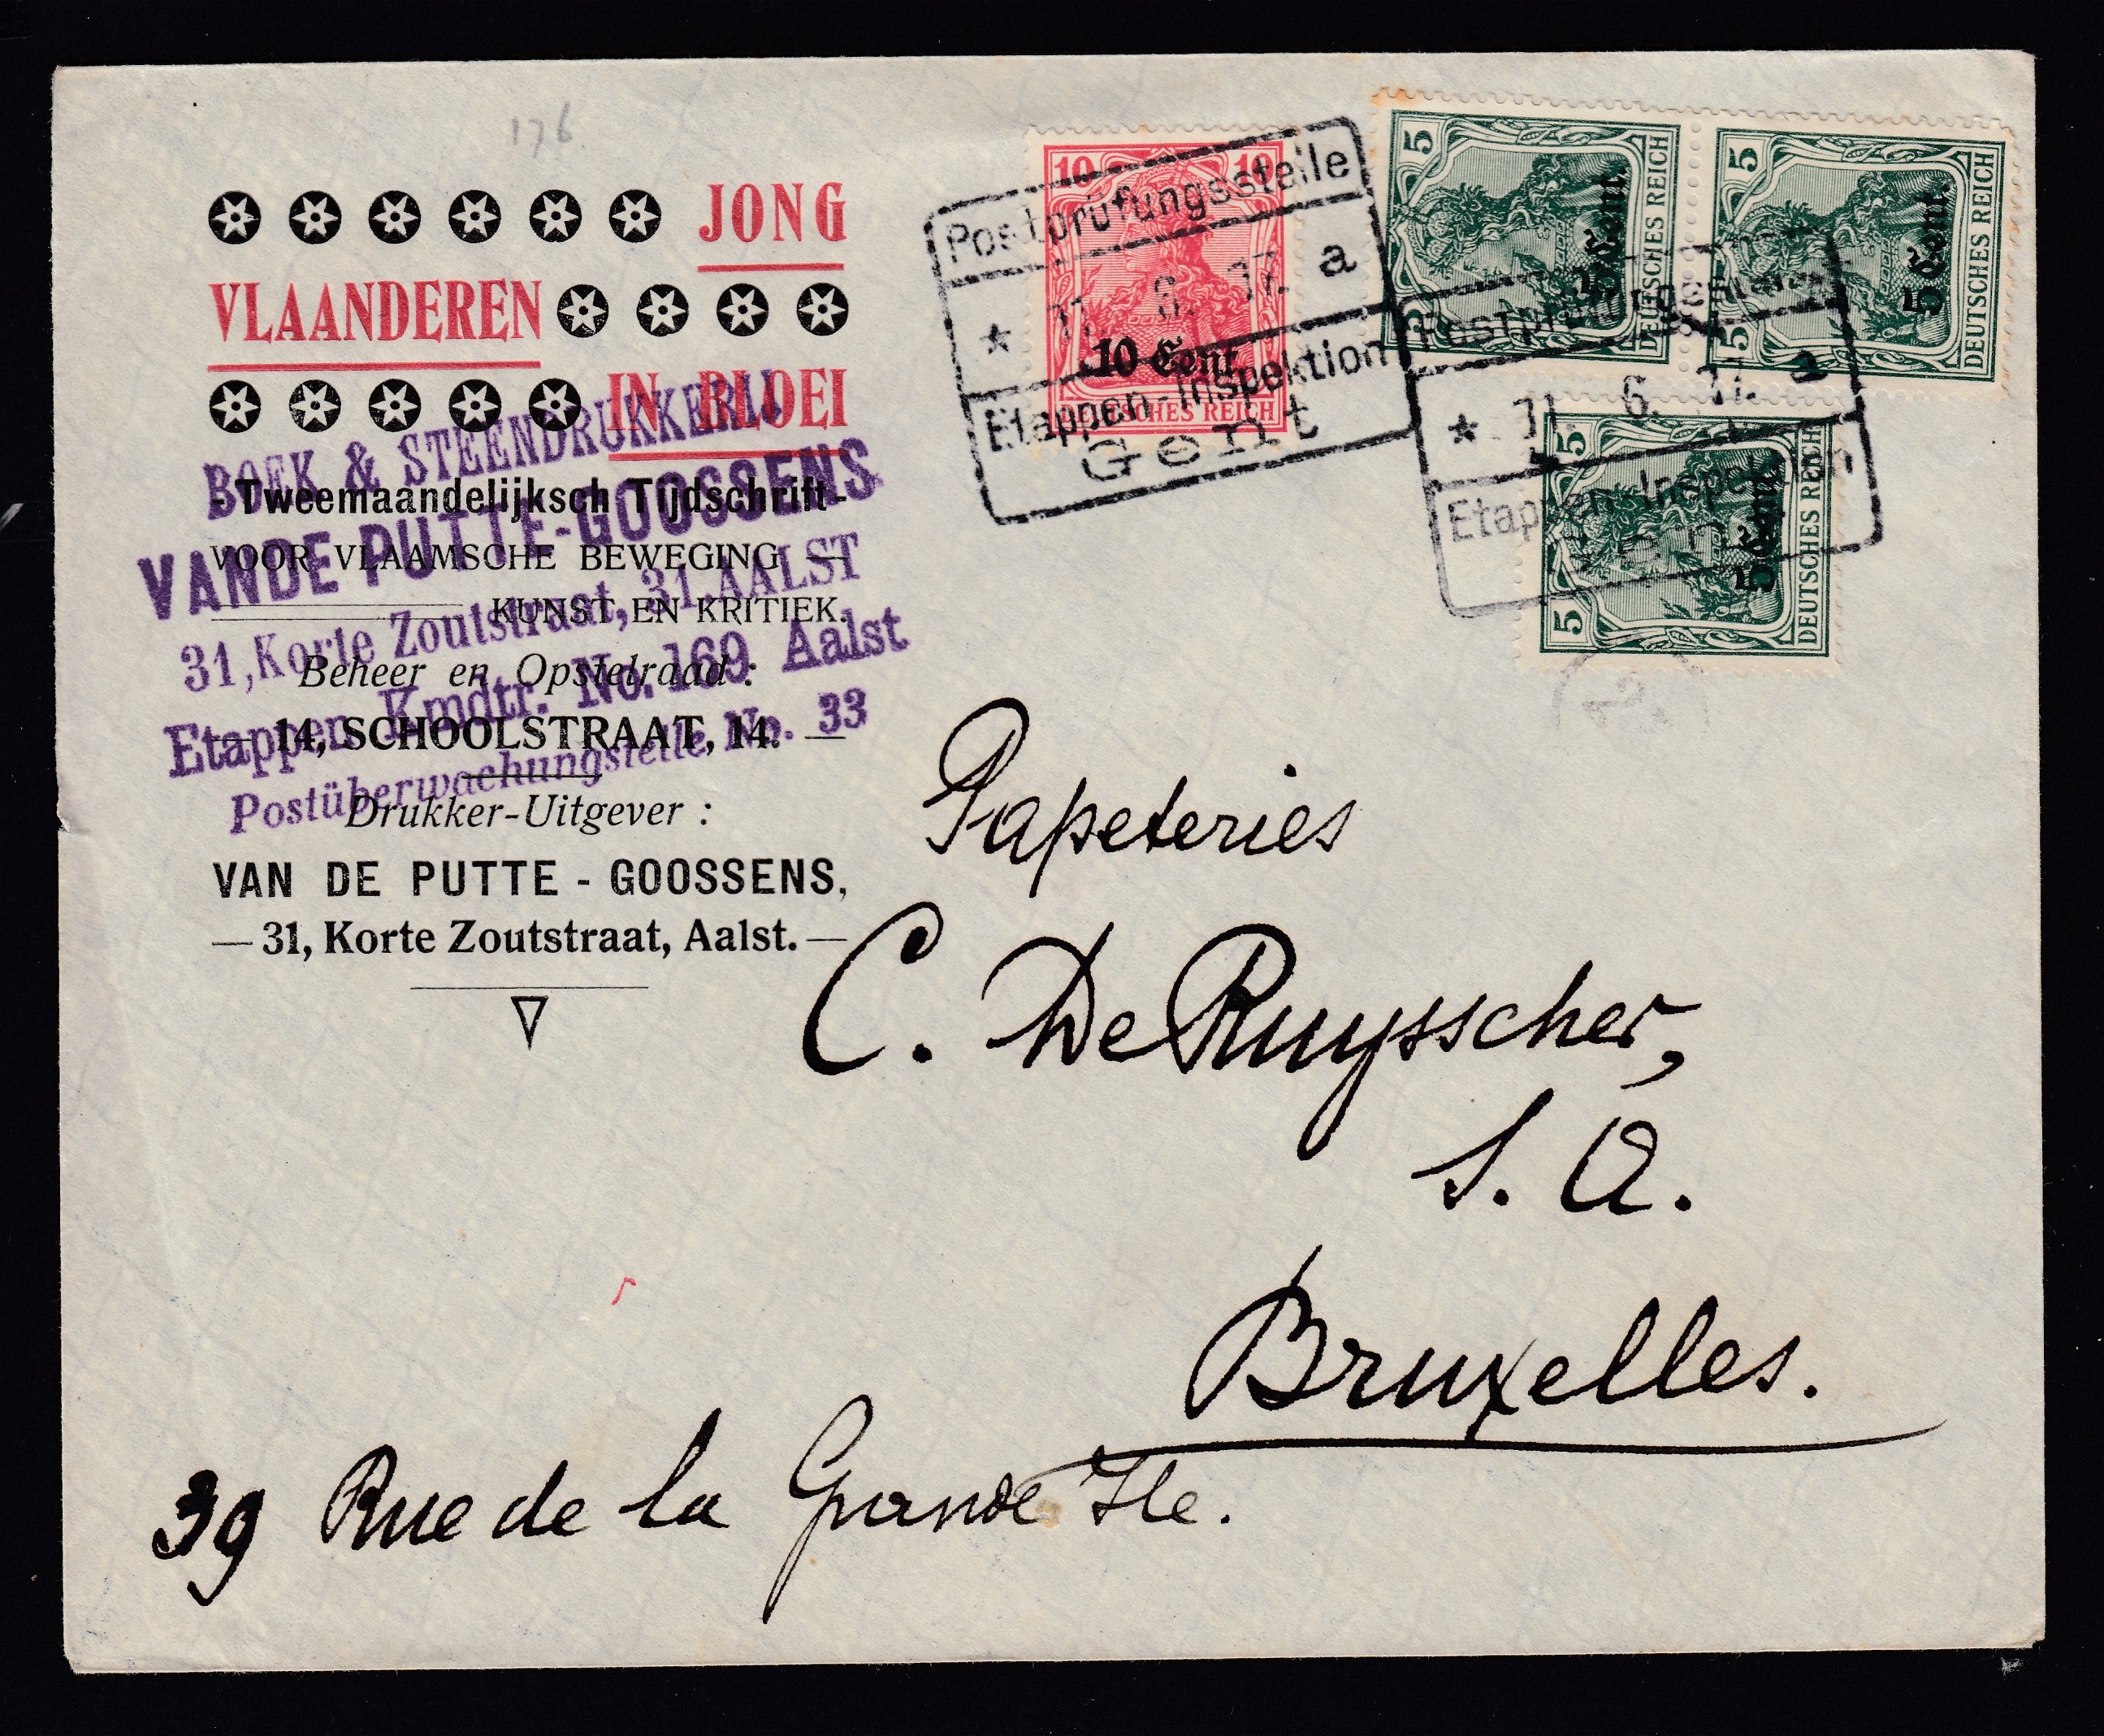 176
JONG
VLAANDEREN
IN BLOEI
- Tweemaandelijksch Tijdschrift -
VOOR VLAAMSCHE BEWEGING —
KUNST EN KRITIEK.
Beheer en Opstelraad :
— 14, SCHOOLSTRAAT, 14. —
Drukker-Uitgever :
VAN DE PUTTE - GOOSSENS,
— 31, Korte Zoutstraat, Aalst. —
BOEK & STEENDRUKKERIJ
VANDE PUTTE-GOOSSENS
31, Korte Zoutstraat, 31, AALST
Etappen Kmdtr. No. 169 Aalst
Postüberwachungstelle No. 33
10 10
10 Cent
DEUTSCHES REICH
Postprüfungsstelle
* 11. 6. 17. a
Etappen-Inspektion
Gent
5 5
5 Cent.
DEUTSCHES REICH
5 5
5 Cent.
DEUTSCHES REICH
Postprüfungsstelle
* 11. 6. 17. a
Etappen-Inspektion
Gent
5 5
5 Cent.
DEUTSCHES REICH
Papeteries
C. De Ruysscher,
S. A.
Bruxelles.
39 Rue de la Grande Ile.